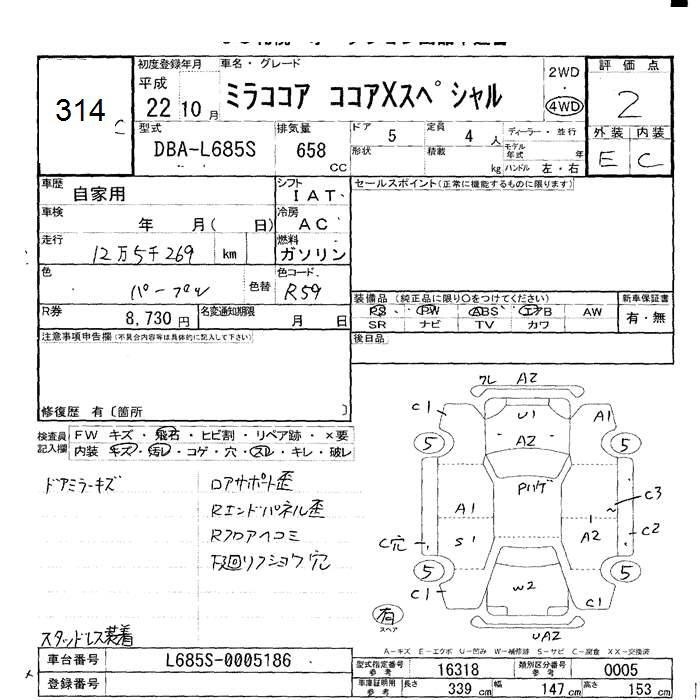 314 C
初度登録年月 車名・グレード
平成 22 10 月 ミラココア ココアXスペシャル
2WD
4WD
評価点
2
外装 内装
E C
型式 排気量 ドア 5 定員 4 人 ディーラー・並行
DBA-L685S 658 CC
形状 積載 kg モデル年式 年
ハンドル 左・右
車歴 自家用 シフト IAT
セールスポイント(正常に機能するものに限ります)
車検 年 月( 日) 冷房 AC
走行 12万5千269 km 燃料 ガソリン
色 パープル 色替 色コード R59
R券 8,730円 名変通知期限 月 日
装備品(純正品に限り○をつけてください) 新車保証書
PS PW ABS エアB AW 有・無
SR ナビ TV カワ
注意事項申告欄(不具合内容等は具体的に記入して下さい)
後日品
修復歴 有〔箇所 〕
検査員記入欄 FW キズ・飛石・ヒビ割・リペア跡・×要
内装 キズ・汚レ・コゲ・穴・スレ・キレ・破レ
ドアミラーキズ
ロアサポート歪
Rエンドパネル歪
Rフロアヘコミ
下廻リフショウ穴
スタッドレス装着
ワレ A2
C1 U1 A1
5 A2 5
Pハゲ
A1 C3
C穴 S1 A2 C2
5 5
C1 W2 C1
有
スペア
UA2
A-キズ E-エクボ U-凹み W-補修跡 S-サビ C-腐食 XX-交換済
車台番号 L685S-0005186
型式指定番号参考 16318 類別区分番号参考 0005
登録番号
車庫証明用参考 長さ 339 cm 幅 147 cm 高さ 153 cm